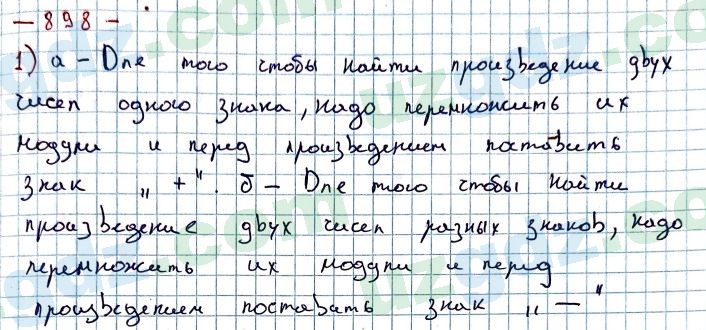 - 898 -
1) а - Для того чтобы найти произведение двух
чисел одного знака, надо перемножить их
модули и перед произведением поставить
знак „ + ". б - Для того чтобы найти
произведение двух чисел разных знаков, надо
перемножить их модули и перед
произведением поставить знак „ — "